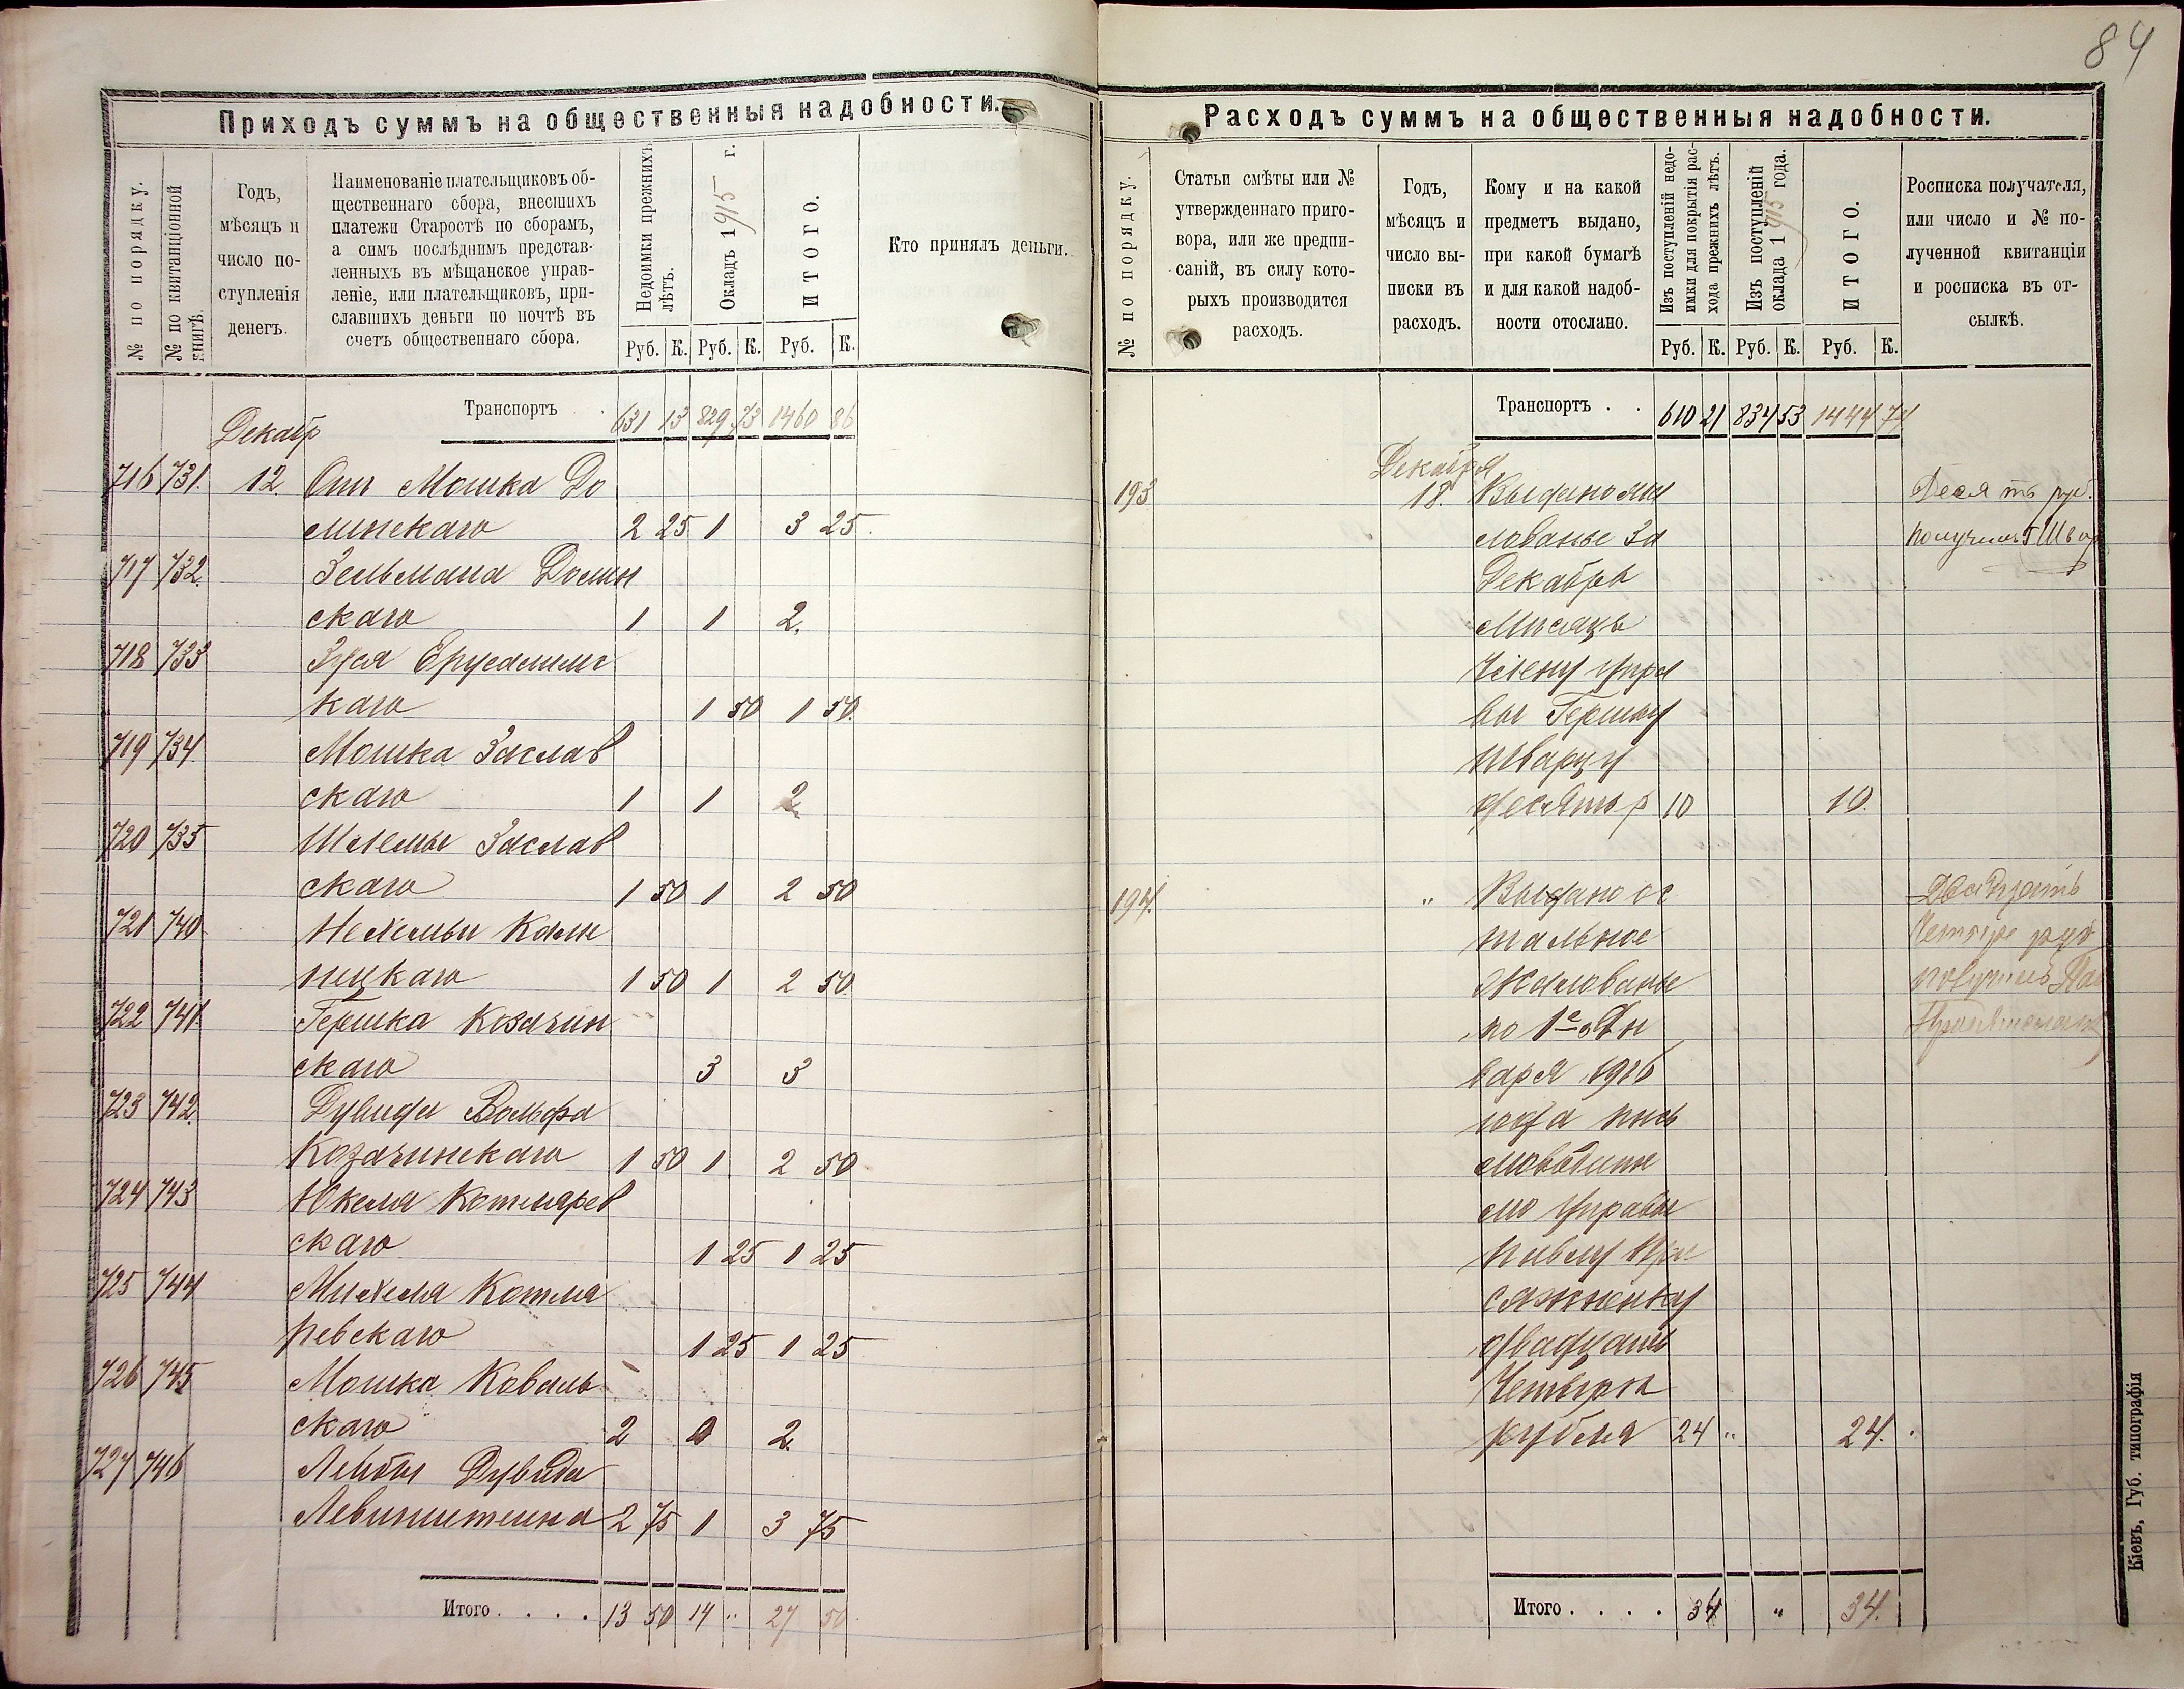 84
Приходъ суммъ на общественныя надобности.
№ по порядку.
№ по квитанціонной книгѣ.
Годъ,
мѣсяцъ и
число по-
ступленія
денегъ.
Наименованіе плательщиковъ об-
щественнаго сбора, внесшихъ
платежи Старостѣ по сборамъ,
а симъ послѣднимъ представ-
ленныхъ въ мѣщанское управ-
леніе, или плательщиковъ, при-
славшихъ деньги по почтѣ въ
счетъ общественнаго сбора.
Недоимки прежнихъ
лѣтъ.
Окладъ 1915 г.
ИТОГО.
Кто принялъ деньги.
Руб. К. Руб. К. Руб. К.
Транспортъ . 631 13 829 73 1460 86
Декабр
716 731. 12. Отъ Мошка До
линскаго 2 25 1 3 25
717 732. Зельмана Долин
скаго 1 1 2.
718 733 Зуся Ерусалимс
каго 1 50 1 50.
719 734. Мошка Заслав
скаго 1 1 2
720 735 Шлемы Заслав
скаго 1 50 1 2 50
721 740 Нехемьи Калм
ницкаго 1 50 1 2 50.
722 741. Гершка Козачин
скаго 3 3
723 742. Дувида Вольфа
Козачинскаго 1 50 1 2 50
724 743 Юкеля Котляров
скаго 1 25 1 25
725 744 Михеля Котля
ревскаго 1 25 1 25
726 745 Мошка Коваль
скаго 2 0 2.
727 746 Лейбы Дувида
Левинштеина 2 75 1 3 75
Итого . . . . 13 50 14 " 27 50
Расходъ суммъ на общественныя надобности.
№ по порядку.
Статьи смѣты или №
утвержденнаго приго-
вора, или же предпи-
саній, въ силу кото-
рыхъ производится
расходъ.
Годъ,
мѣсяцъ и
число вы-
писки въ
расходъ.
Кому и на какой
предметъ выдано,
при какой бумагѣ
и для какой надоб-
ности отослано.
Изъ поступленій недо-
имки для покрытія рас-
хода прежнихъ лѣтъ.
Изъ поступленій
оклада 1915 года.
ИТОГО.
Росписка получателя,
или число и № по-
лученной квитанціи
и росписка въ от-
сылкѣ.
Руб. К. Руб. К. Руб. К.
Транспортъ . . 610 21 834 53 1444 74
Декабря
193 18. Выдано жа Десять руб.
лованье за получилъ Швар
Декабрь
Мѣсяцъ
Члену Упра
вы Гершку
Шварцу
десять р 10 10.
194. " Выдано ос Двадцать
тальное Четыре руб
Жалованье получилъ
по 1е Ян
варя 1916
года пись
моводите
лю Управы
Павлу При
сяжненку
двадцать
Четыри
рубля 24 " 24.
Итого . . . . 34 " 34.
Кіевъ, Губ. типографія